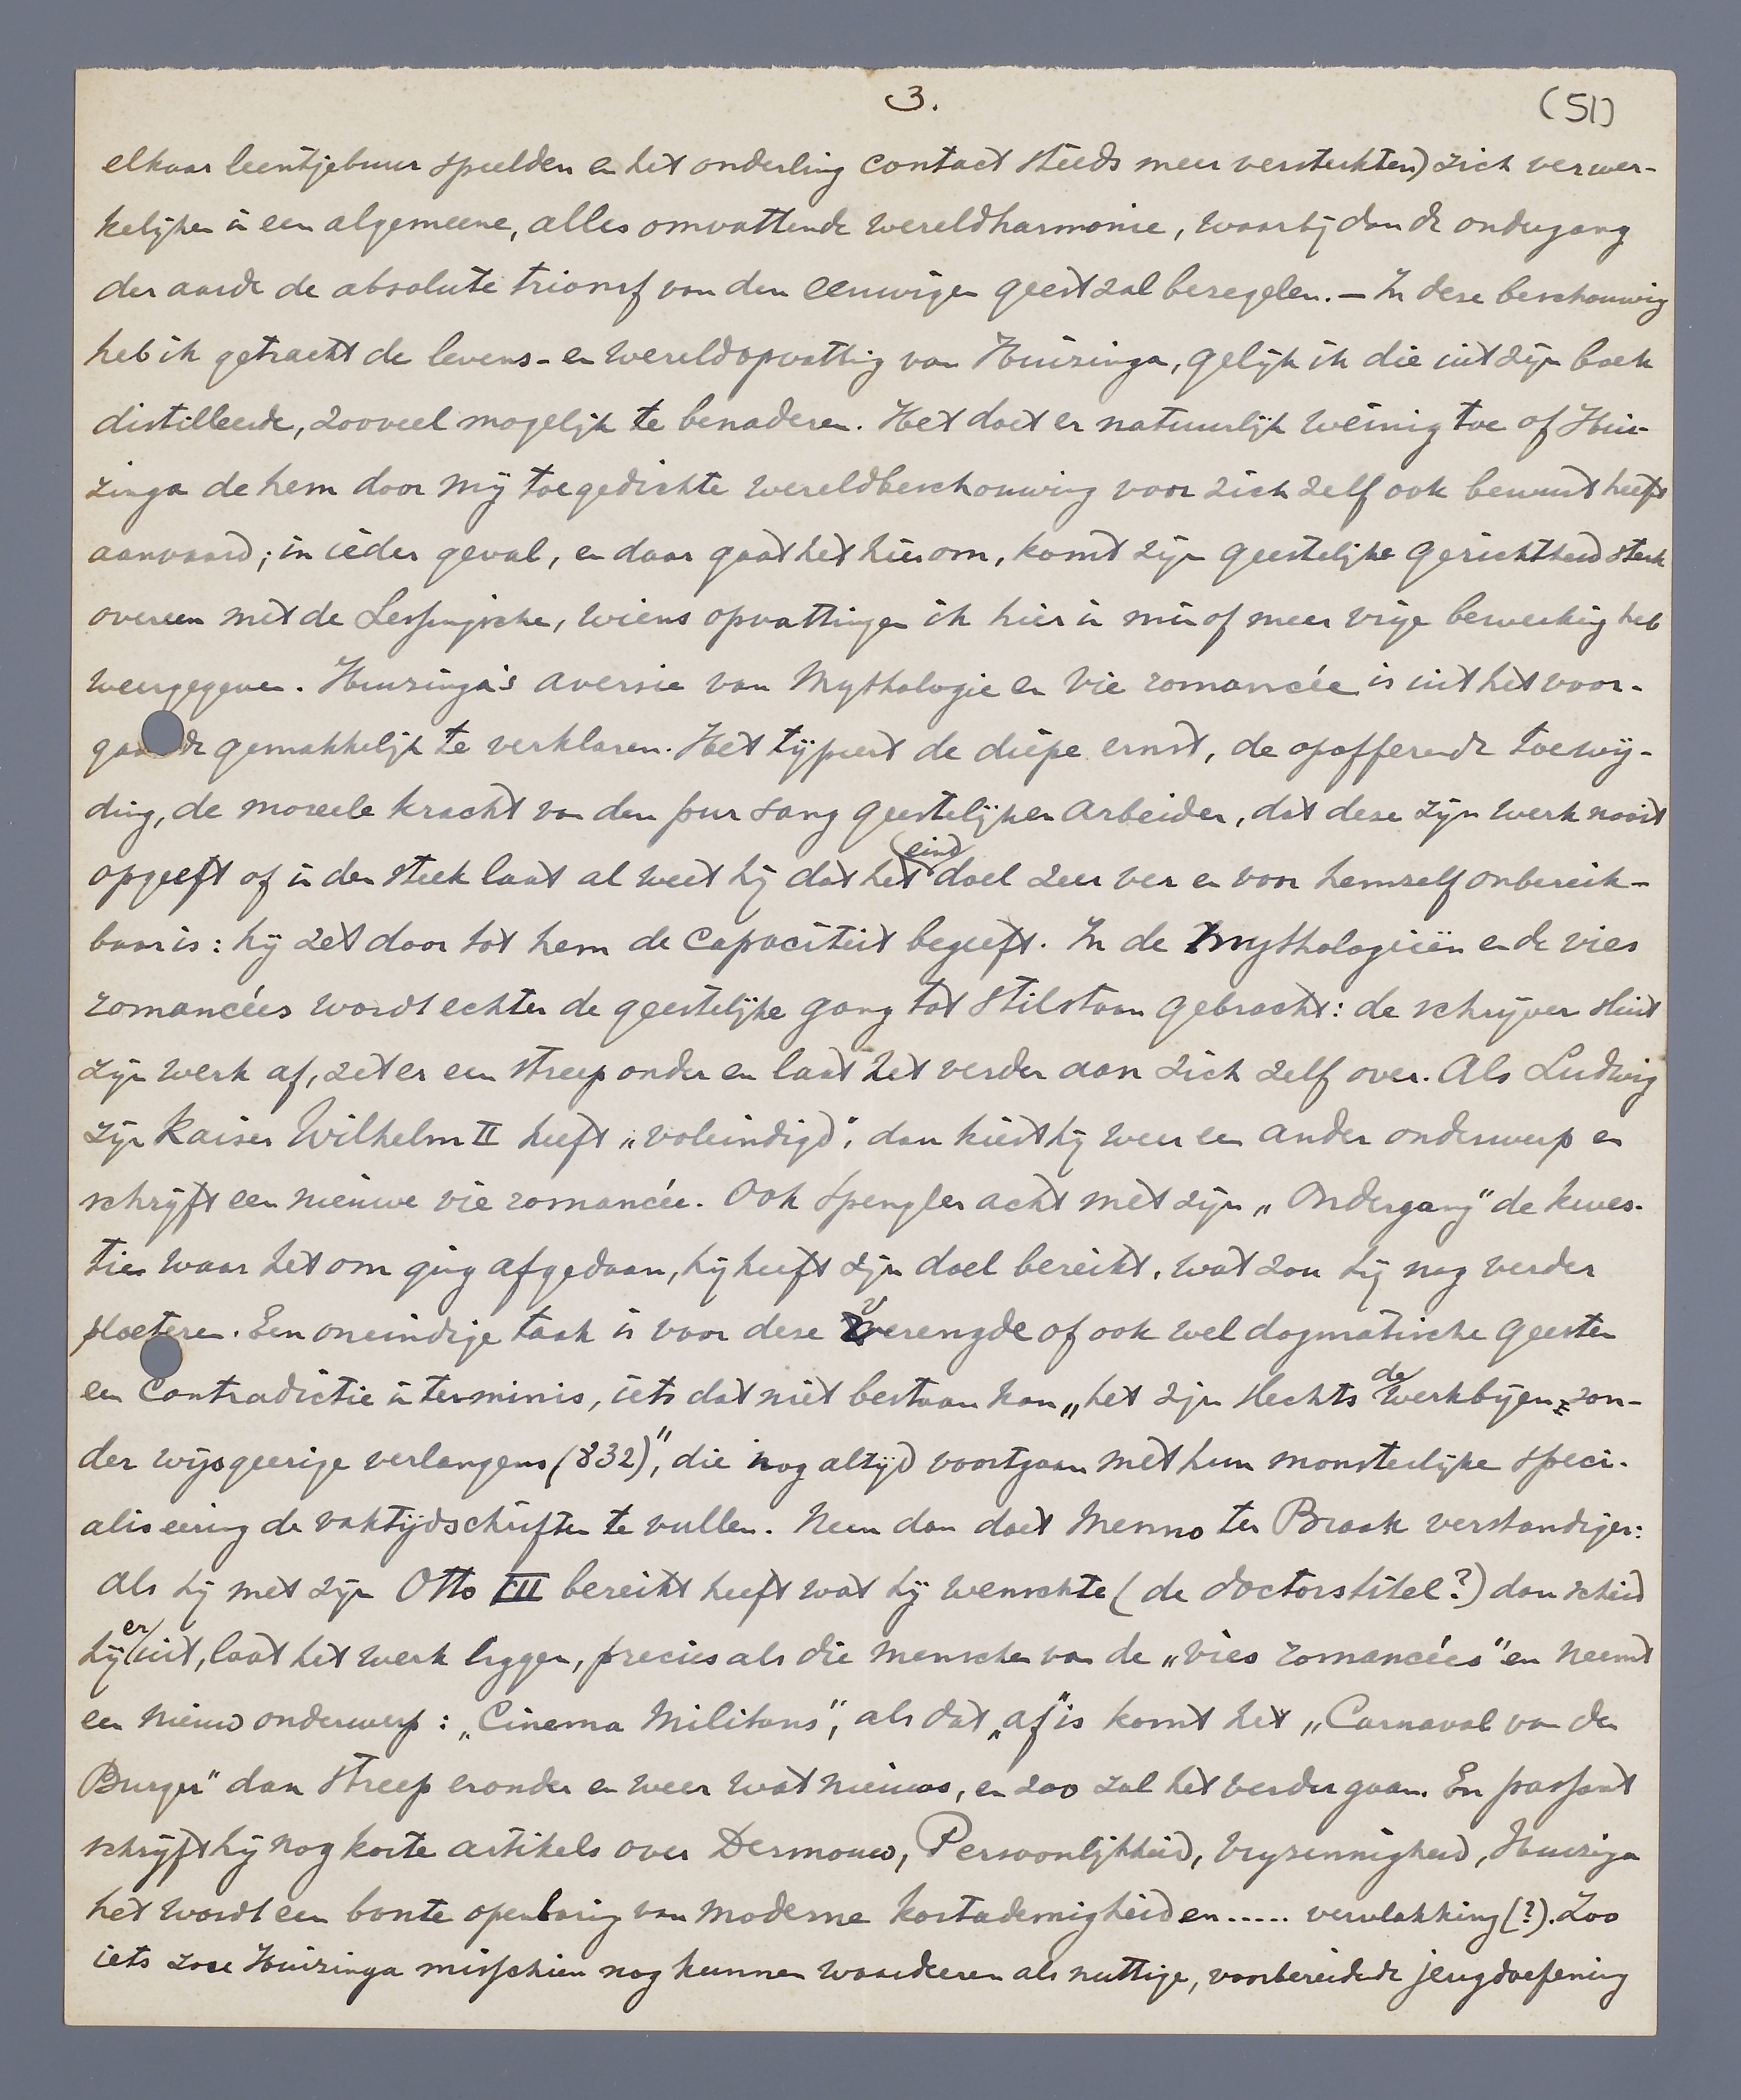 3.
(51)
elkaar leentjebuur speelden en het onderling contact steeds meer versterkten) zich verwer-
kelijken in een algemeene, alles omvattende wereldharmonie, waarbij dan de ondergang
der aarde de absolute triomf van den eeuwigen geest zal bezegelen. — In deze beschouwing
heb ik getracht de levens- en wereldopvatting van Huizinga, gelijk ik die uit zijn boek
distilleerde, zooveel mogelijk te benaderen. Het doet er natuurlijk weinig toe of Hui-
zinga de hem door mij toegedichte wereldbeschouwing voor zich zelf ook bewust heeft
aanvaard; in ieder geval, en daar gaat het hier om, komt zijn geestelijke gerichtheid sterk
overeen met de Lessingsche, wiens opvattingen ik hier in min of meer vrije bewerking heb
weergegeven. Huizinga's aversie van Mythologie en vie romancée is uit het voor-
gaande gemakkelijk te verklaren. Het typeert de diepe ernst, de opofferende toewij-
ding, de moreele kracht van den pur sang geestelijken arbeider, dat deze zijn werk nooit
opgeeft of in den steek laat al weet hij dat het einddoel zeer ver en voor hemzelf onbereik-
baar is: hij zet door tot hem de capaciteit begeeft. In de mythologieën en de vies
romancées wordt echter de geestelijke gang tot stilstaan gebracht: de schrijver sluit
zijn werk af, zet er een streep onder en laat het verder aan zich zelf over. Als Ludwig
zijn Kaiser Wilhelm II heeft „voleindigd", dan kiest hij weer een ander onderwerp en
schrijft een nieuwe vie romancée. Ook Spengler acht met zijn „Ondergang" de kwes-
ties waar het om ging afgedaan, hij heeft zijn doel bereikt, wat zou hij nog verder
ploeteren. Een oneindige taak is voor deze verengde of ook wel dogmatische geesten
een contradictie in terminis, iets dat niet bestaan kan „het zijn slechts de werkbijen zon-
der wijsgeerige verlangens (832)", die nog altijd voortgaan met hun monsterlijke speci-
aliseering de vaktijdschriften te vullen. Neen dan doet Menno ter Braak verstandiger:
als hij met zijn Otto III bereikt heeft wat hij wenschte (de doctorstitel?) dan scheid
hij er uit, laat het werk liggen, precies als die menschen van de „vies romancées" en neemt
een nieuw onderwerp: „Cinema Militans", als dat „af" is komt het „Carnaval van den
Burger" dan streep eronder en weer wat nieuws, en zoo zal het verder gaan. En passant
schrijft hij nog korte artikels over Dermouw, Persoonlijkheid, Vrijzinnigheid, Huizinga
het wordt een bonte openbaring van moderne kortademigheid en..... vervlakking (?). Zoo
iets zou Huizinga misschien nog kunnen waardeeren als nuttige, voorbereidende jeugdoefening